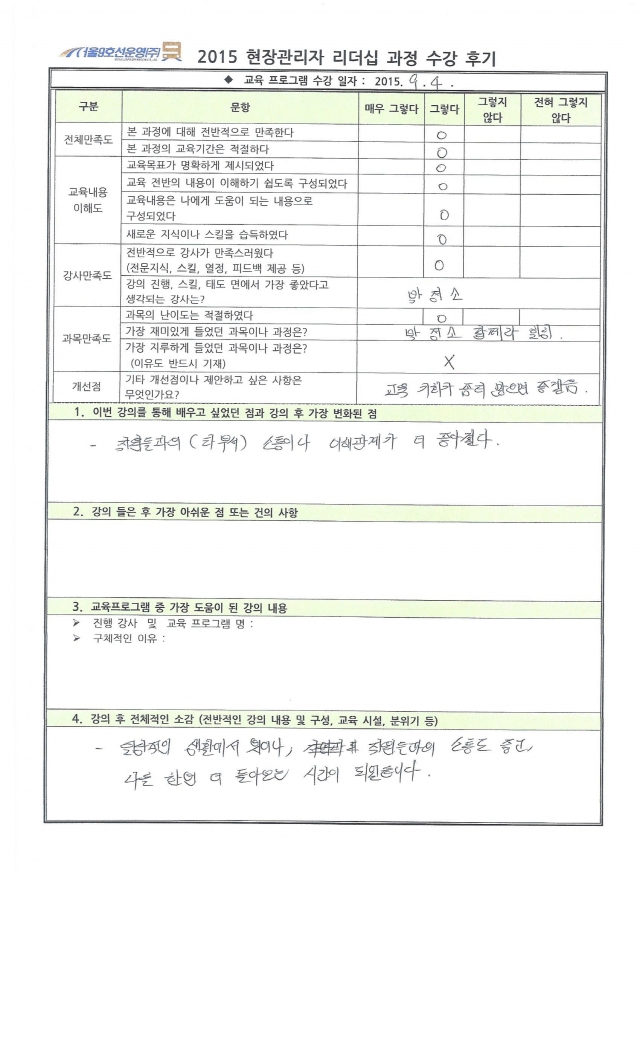 서울9호선운영(주)
2015 현장관리자 리더십 과정 수강 후기
◆ 교육 프로그램 수강 일자 : 2015. 9. 4.
구분 문항 매우 그렇다 그렇다. 그렇지 않다 전혀 그렇지 않다
전체만족도
본 과정에 대해 전반적으로 만족한다 O
본 과정의 교육기간은 적절하다 O
교육내용 이해도
교육목표가 명확하게 제시되었다 O
교육 전반의 내용이 이해하기 쉽도록 구성되었다 O
교육내용은 나에게 도움이 되는 내용으로
구성되었다 O
새로운 지식이나 스킬을 습득하였다 O
강사만족도
전반적으로 강사가 만족스러웠다
(전문지식, 스킬, 열정, 피드백 제공 등) O
강의 진행, 스킬, 태도 면에서 가장 좋았다고
생각되는 강사는? 박 정 소
과목만족도
과목의 난이도는 적절하였다 O
가장 재미있게 들었던 과목이나 과정은? 박 정소
가장 지루하게 들었던 과목이나 과정은?
(이유도 반드시 기재) X
개선점
기타 개선점이나 제안하고 싶은 사항은
무엇인가요? 교육 기회가 좀더 많으면 좋겠음.
1. 이번 강의를 통해 배우고 싶었던 점과 강의 후 가장 변화된 점
- 직원들과의 (타부서) 소통이나 이해관계가 더 좋아졌다.
2. 강의 들은 후 가장 아쉬운 점 또는 건의 사항
3. 교육프로그램 중 가장 도움이 된 강의 내용
➢ 진행 강사 및 교육 프로그램 명 :
➢ 구체적인 이유 :
4. 강의 후 전체적인 소감 (전반적인 강의 내용 및 구성, 교육 시설, 분위기 등)
- 일상적인 생활에서 벗어나, 직원들과의 소통도 좋고,
나를 한번 더 돌아보는 시간이 되었습니다.